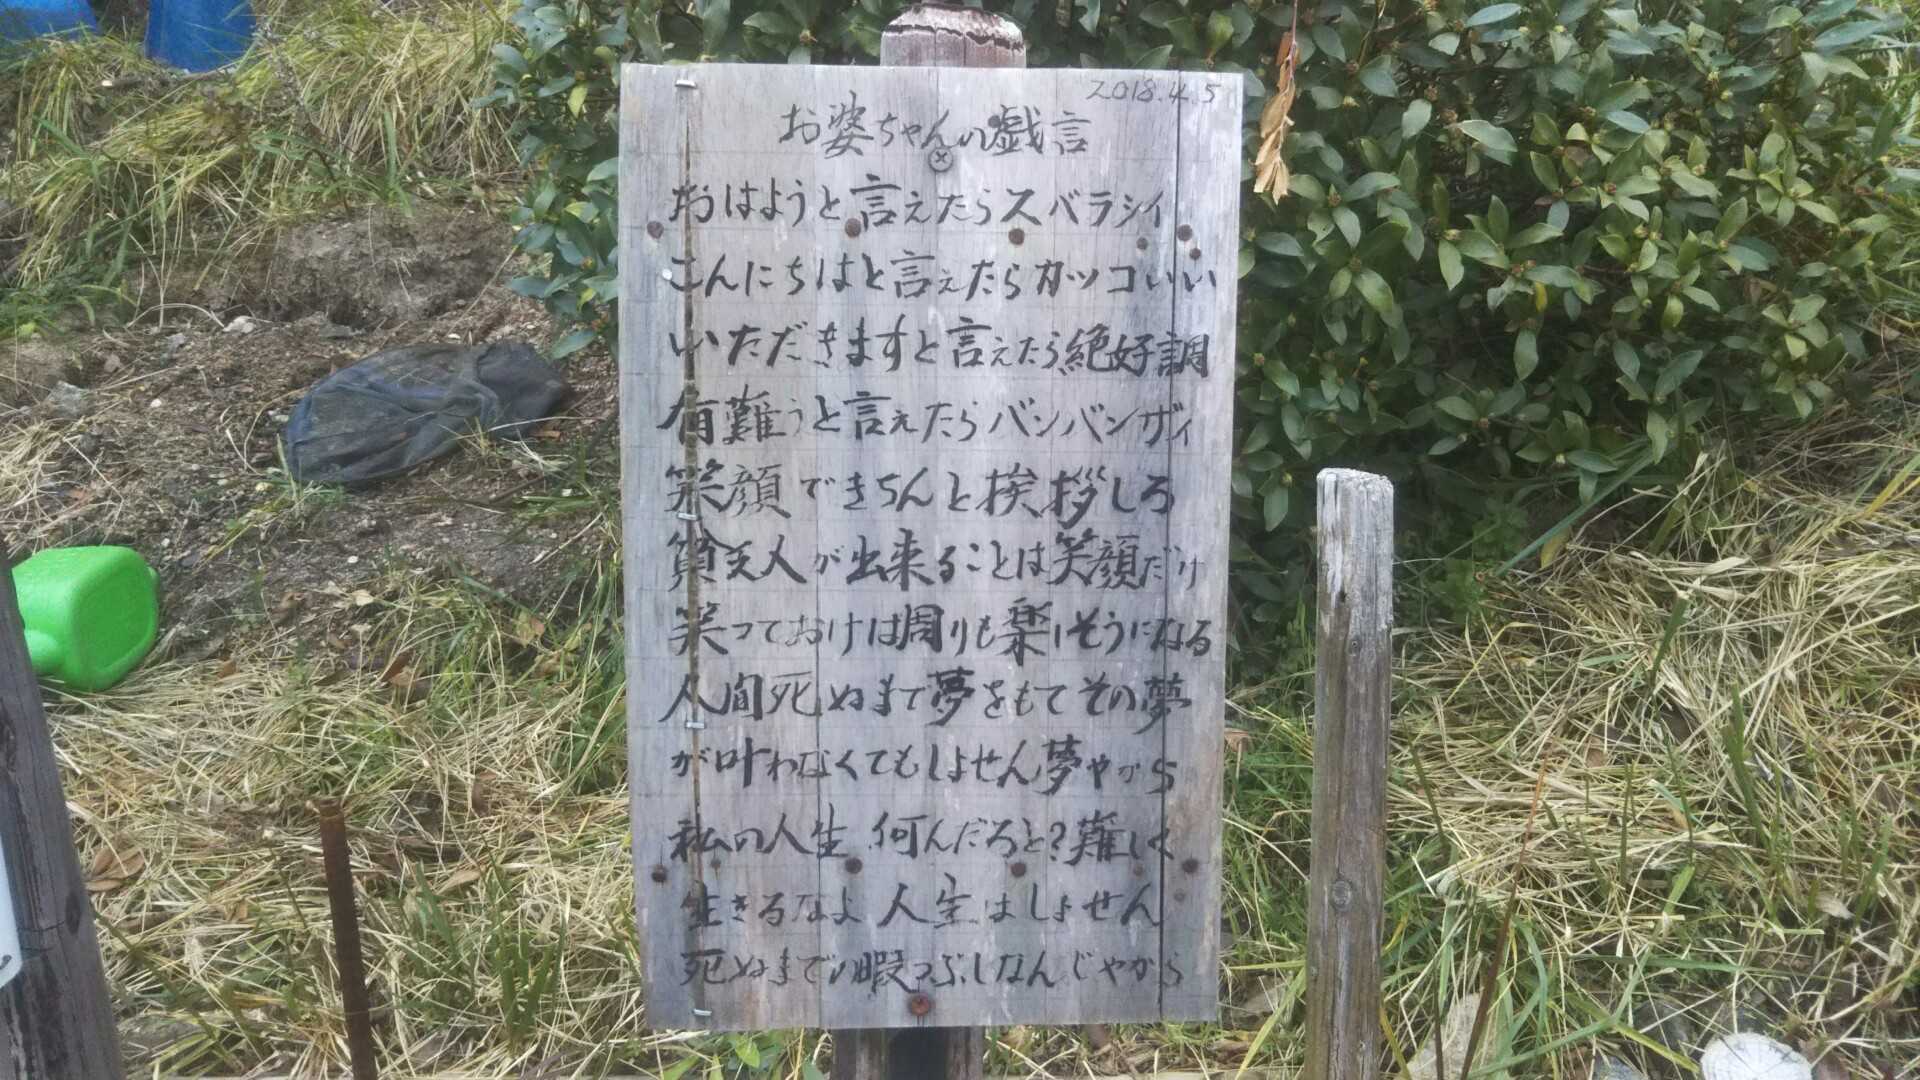 2018.4.5
お婆ちゃんの戯言
おはようと言えたらスバラシイ
こんにちはと言えたらカッコいい
いただきますと言えたら絶好調
有難うと言えたらバンバンザイ
笑顔できちんと挨拶しろ
貧乏人が出来ることは笑顔だけ
笑っておけば周りも楽しそうになる
人間死ぬまで夢をもてその夢
が叶わなくてもしょせん夢やから
私の人生何んだろと?難しく
生きるなよ人生はしょせん
死ぬまでの暇つぶしなんじゃから